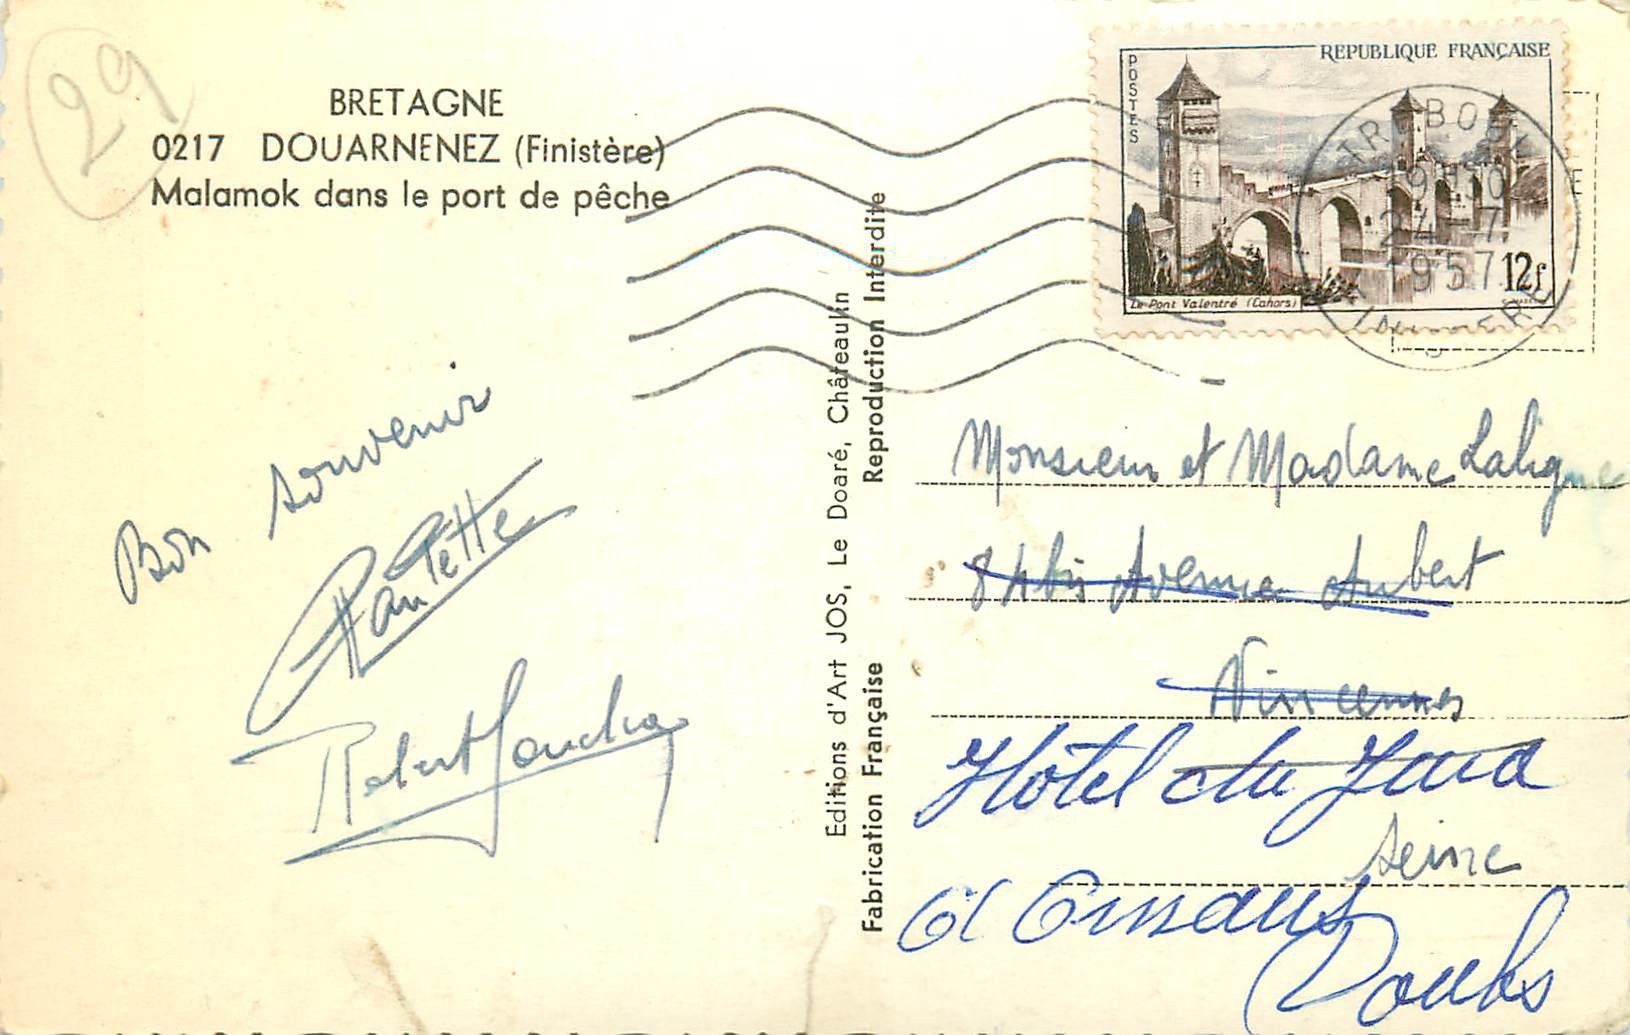 29
BRETAGNE
0217 DOUARNENEZ (Finistère)
Malamok dans le port de pêche
REPUBLIQUE FRANÇAISE
POSTES
Le Pont Valentré (Cahors)
12f
24-7
1957
Editions d'Art JOS, Le Doaré, Châteaulin
Reproduction Interdite
Fabrication Française
Bon souvenir
Paulette
Robert
Monsieur et Madame Laligne
84bis Avenue Aubert
Vincennes
Hôtel du Jura
Seine
à Ornans
Doubs